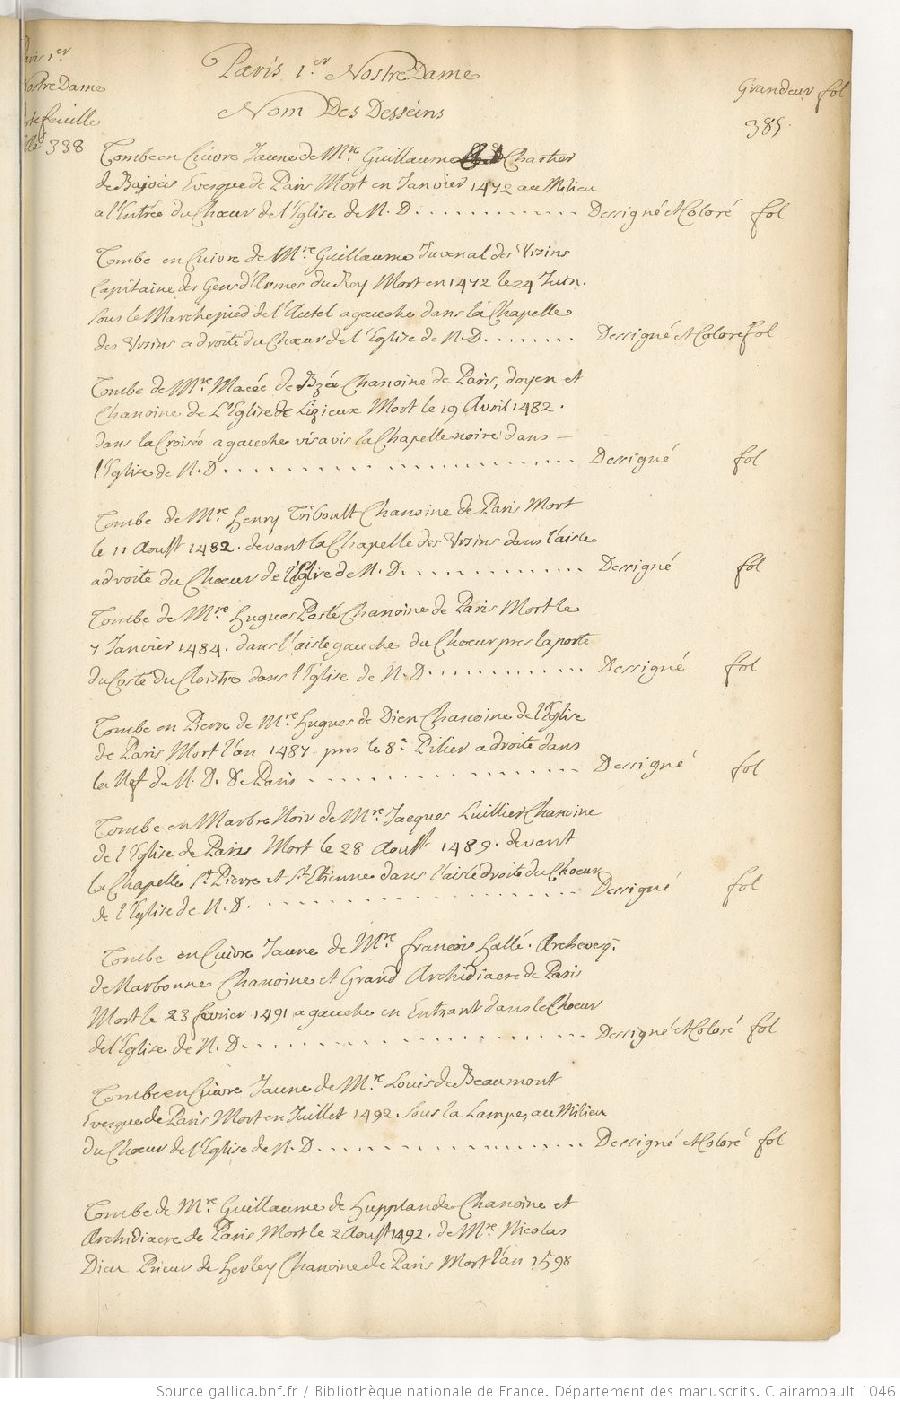 Paris 1.er
Nostre Dame
Portefeuille
338
Paris 1.er Nostre Dame
Grandeur fol
Nom Des Desseins
385.
Tombe en Cuivre Jaune de M.re Guillaume Chartier
de Bajeüs Evesque de Paris Mort en Janvier 1472 au Milieu
a l'Entrée du Chœur de l'Eglise de N. D. . . . . . . . . . . . Dessigné et Coloré fol
Tombe en Cuivre de M.re Guillaume Juvenal des Vrsins
Capitaine des Gens d'Armes du Roy Mort en 1472 le 24 Juin.
sous le Marchepied de l'Autel a gauche dans la Chapelle
des Vrsins a droite du Chœur de l'Eglise de N. D. . . . . . . . Dessigné et Coloré fol
Tombe de M.re Macée de Bzée Chanoine de Paris, doyen et
Chanoine de L'Eglise de Lizieux Mort le 19 Avril 1482.
dans la Croisée a gauche vis a vis la Chapelle noire dans
l'Eglise de N. D . . . . . . . . . . . . . . . . . . . . . . Dessigné fol
Tombe de M.re Henry Triboult Chanoine de Paris Mort
le 11 Aoust 1482. devant la Chapelle des Vrsins dans l'aisle
a droite du Chœur de l'Eglise de N. D. . . . . . . . . . . . Dessigné fol
Tombe de M.re Hugues Pasté Chanoine de Paris Mort le
7 Janvier 1484. dans l'aisle gauche du Chœur pres la porte
du Costé du Cloistre dans l'Eglise de N. D. . . . . . . . . . . Dessigné fol
Tombe en Pierre de M.re Hugues de Dicy Chanoine de l'Eglise
de Paris Mort l'an 1487 pres le 8.e Pilier a droite dans
la Nef de N. D. De Paris . . . . . . . . . . . . . . . . . . Dessigné fol
Tombe en Marbre Noir de M.re Jacques Luillier Chanoine
de l'Eglise de Paris Mort le 28 Aoust 1489. devant
la Chapelle S.t Pierre et S.t Etienne dans l'aisle droite du Chœur
de l'Eglise de N. D. . . . . . . . . . . . . . . . . . . . . Dessigné fol
Tombe en Cuivre Jaune de M.re François Hallé. Archevesq.
de Narbonne Chanoine et Grand Archidiacre de Paris
Mort le 23 fevrier 1491 a gauche en Entrant dans le Chœur
de l'Eglise de N. D. . . . . . . . . . . . . . . . . . . . . Dessigné et Coloré fol
Tombe en Cuivre Jaune de M.re Louis de Beaumont
Evesque de Paris Mort en Juillet 1492. sous la Lampe, au Milieu
du Chœur de l'Eglise de N. D. . . . . . . . . . . . . . . . . Dessigné et Coloré fol
Tombe de M.re Guillaume de Hupplande Chanoine et
Archidiacre de Paris Mort le 2 Aoust 1492. de M.re Nicolas
Dieu Prieur de Herley Chanoine de Paris Mort l'an 1598
Source gallica.bnf.fr / Bibliothèque nationale de France. Département des manuscrits. Clairambault 1046